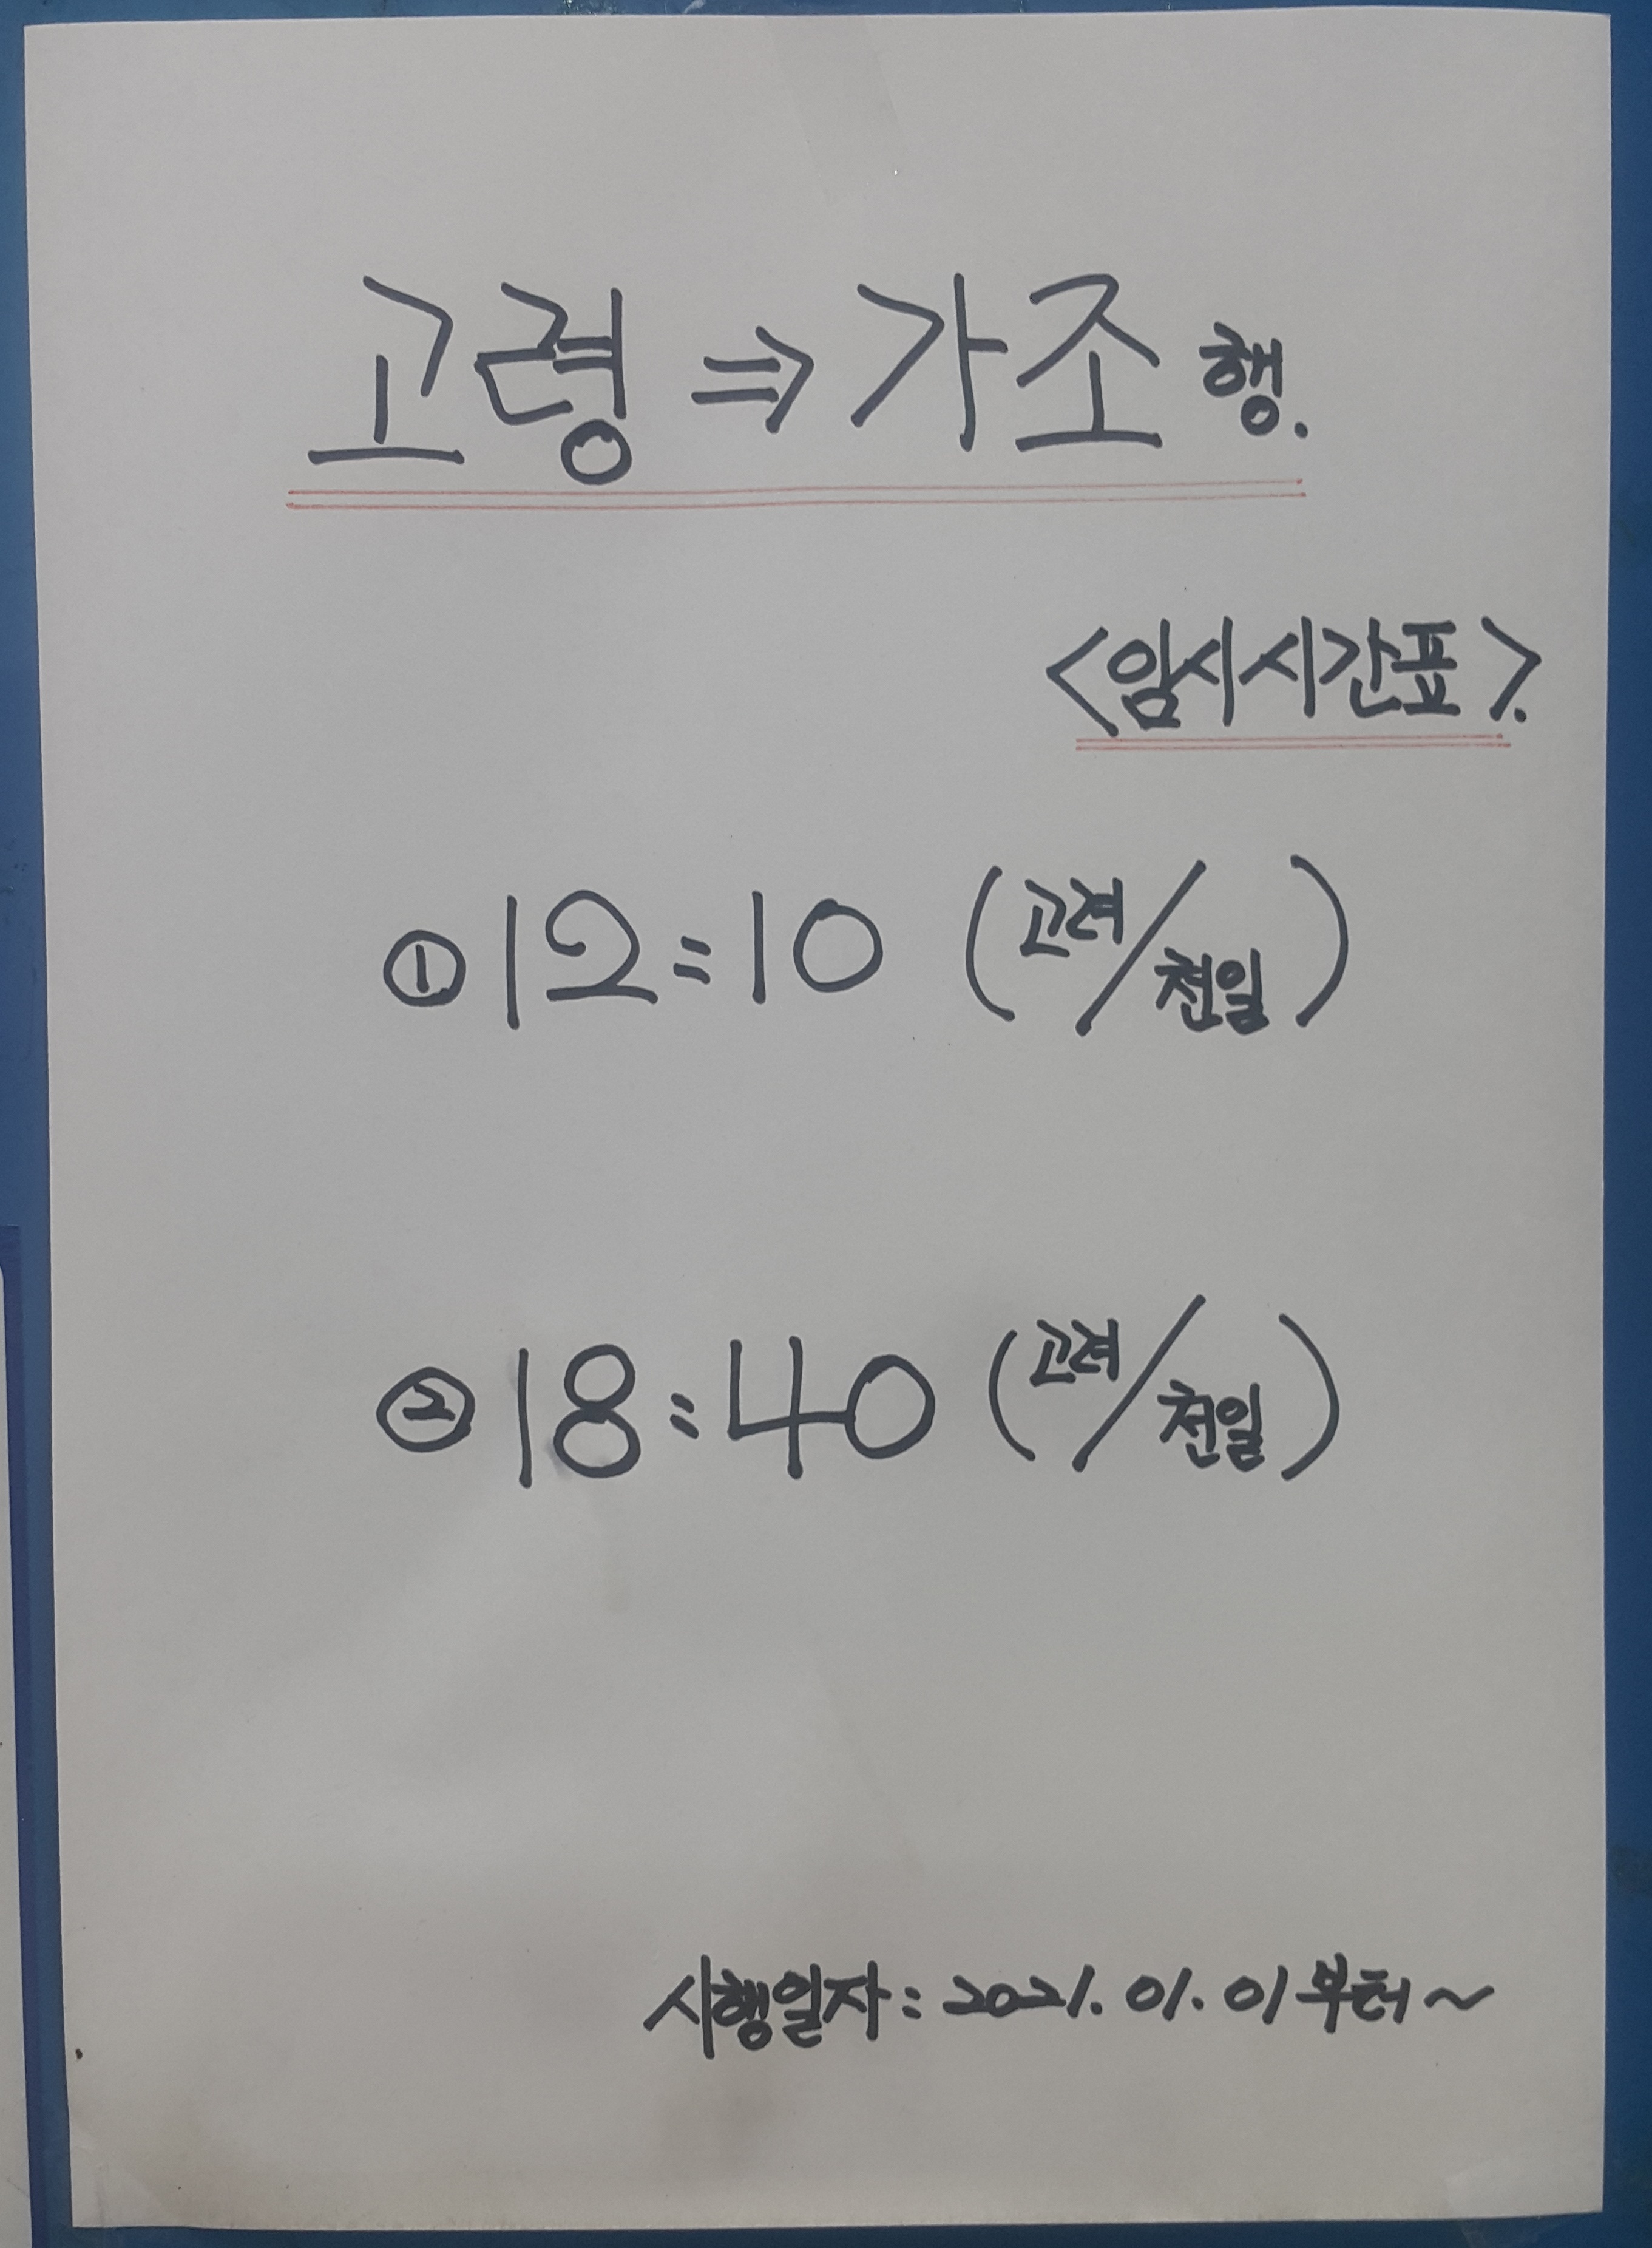 고령 ⇒ 가조 행.
<임시시간표>.
① 12:10 (고려/천일)
② 18:40 (고려/천일)
시행일자: 2021. 01. 01 부터~